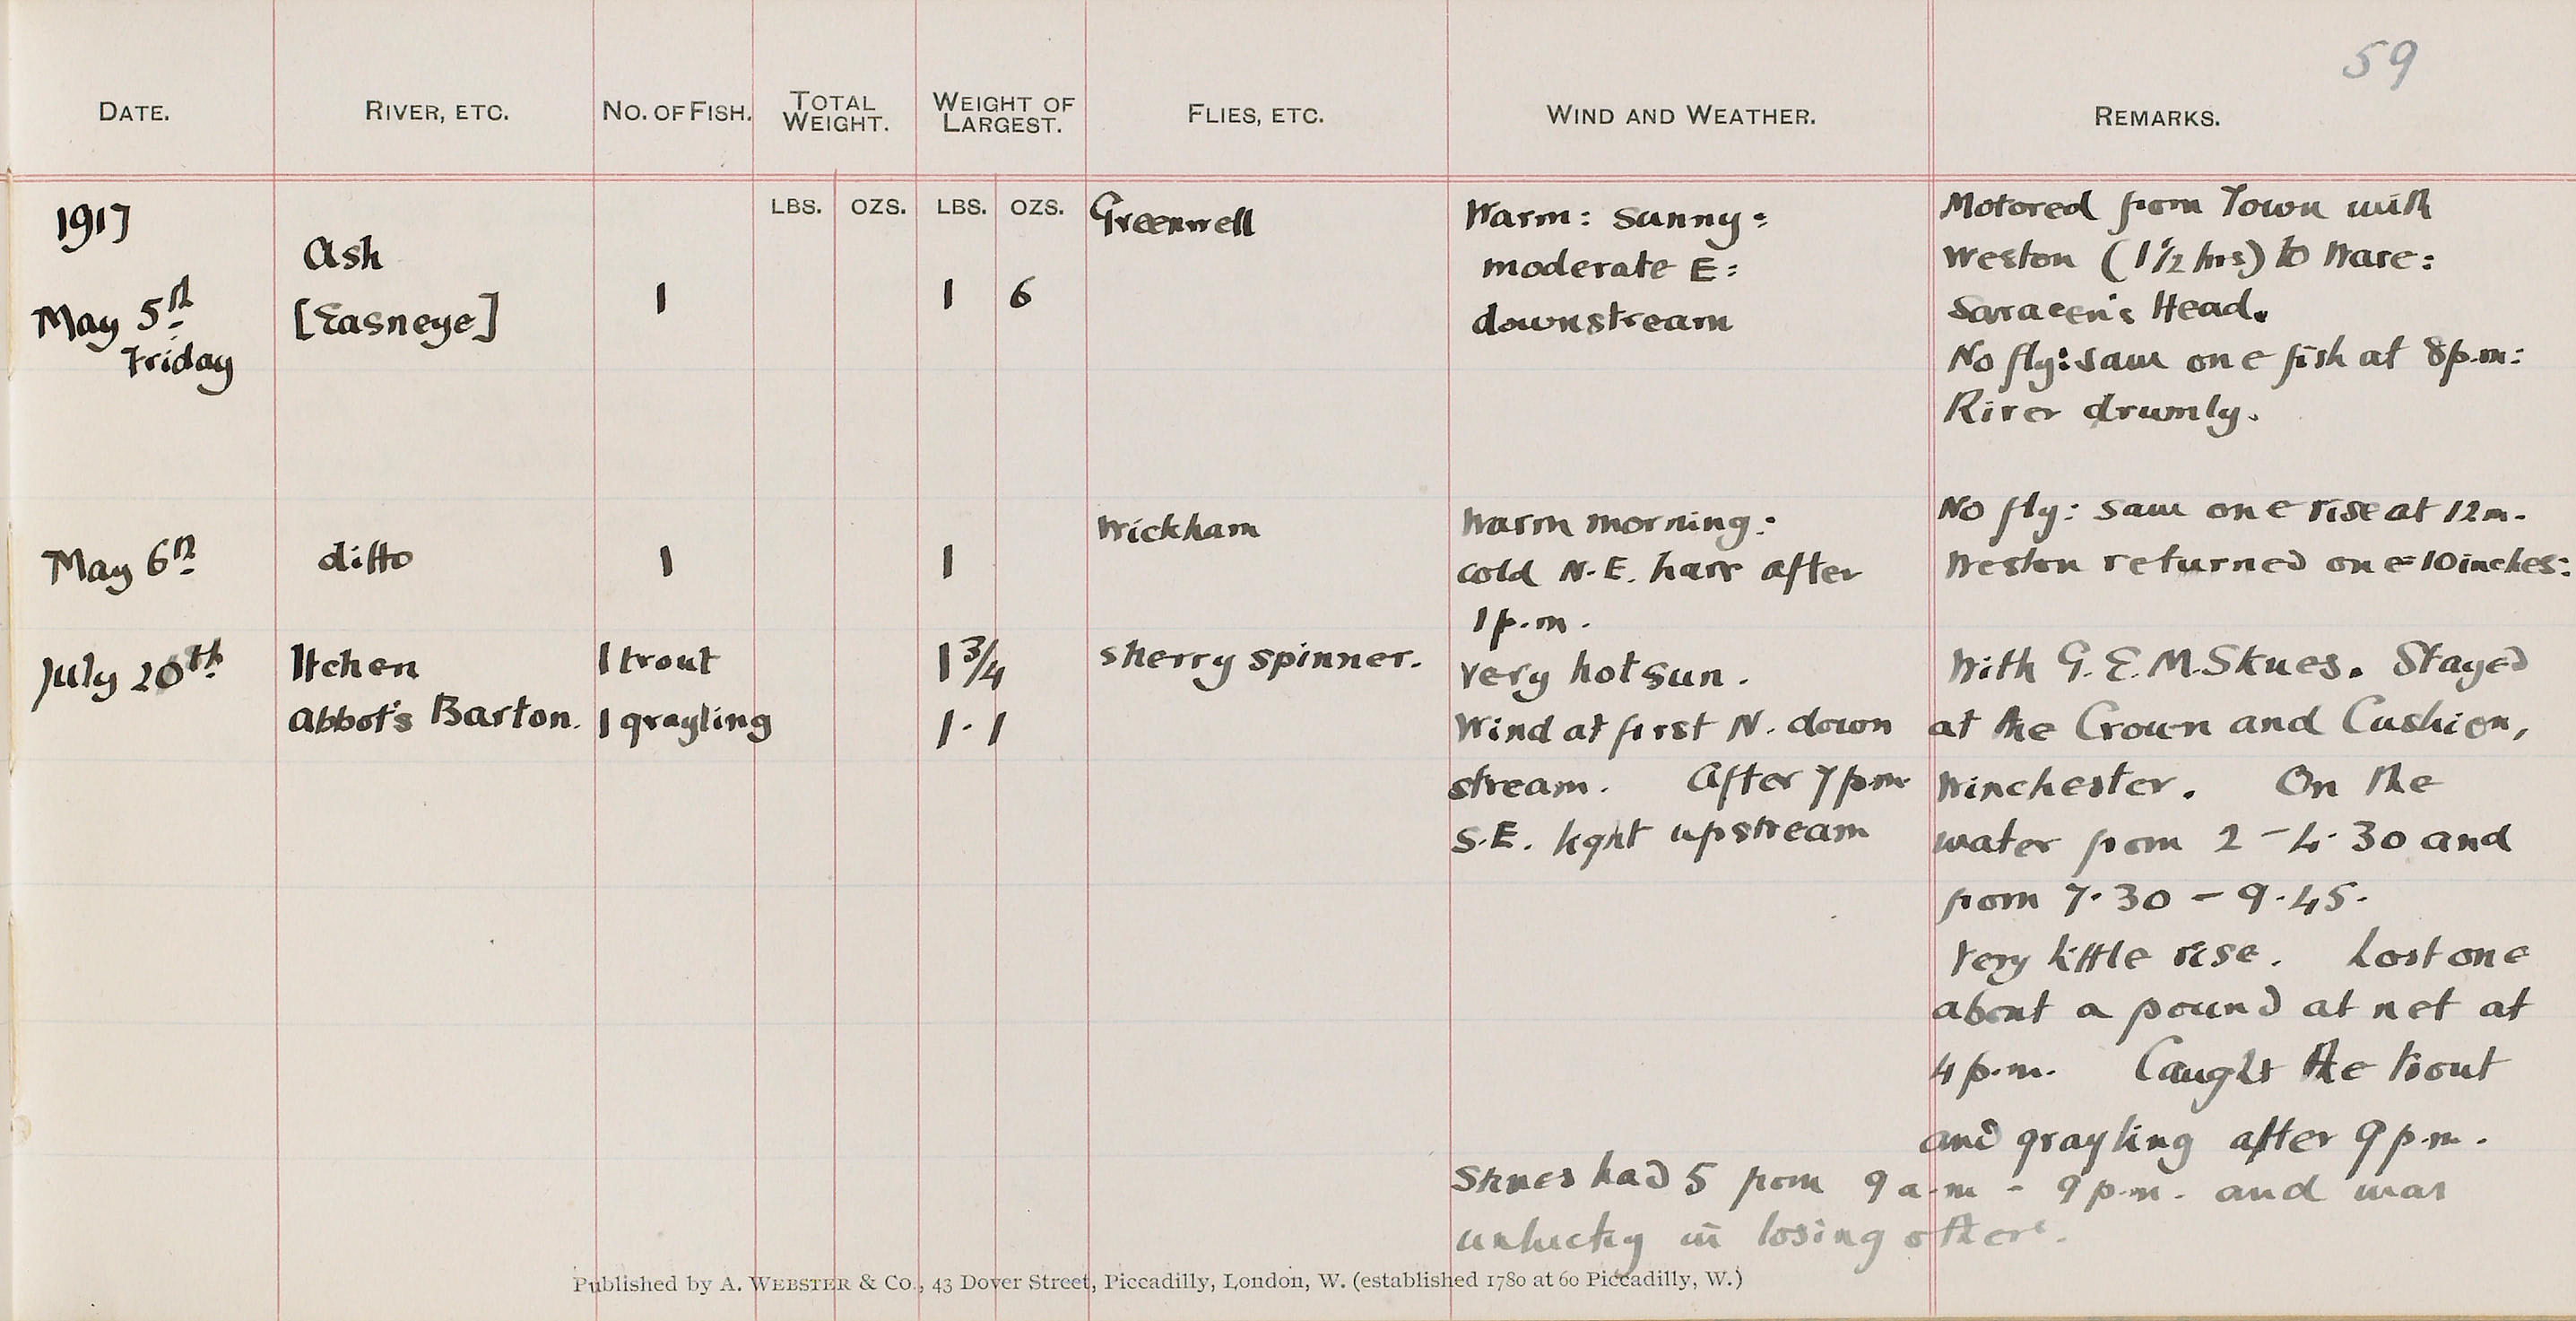 59
DATE. RIVER, ETC. NO. OF FISH. TOTAL WEIGHT. WEIGHT OF LARGEST. FLIES, ETC. WIND AND WEATHER. REMARKS.
LBS. OZS. LBS. OZS.
1917
May 5th
Friday
Ash
[Easneye]
1
1 6
Greenwell
Warm: sunny:
moderate E:
downstream
Motored from Town with
Weston (1 1/2 hrs) to Ware:
Saracen's Head.
No fly: saw one fish at 8p.m:
River drumly.
May 6th
ditto
1
1
Wickham
Warm morning:
cold N.E. harr after
1p.m.
No fly: saw one rise at 12m.
Weston returned one=10inches:
July 20th
Itchen
Abbot's Barton.
1 trout
1 grayling
1 3/4
1.1
Sherry spinner.
Very hot sun.
Wind at first N. down
stream. After 7pm
S.E. light upstream
With G.E.M.Skues. Stayed
at the Crown and Cushion,
Winchester. On the
water from 2-4.30 and
from 7.30-9.45.
Very little rise. Lost one
about a pound at net at
4p.m. Caught the trout
and grayling after 9p.m.
Skues had 5 from 9a.m - 9p.m. and was
unlucky in losing others.
Published by A. WEBSTER & Co., 43 Dover Street, Piccadilly, London, W. (established 1780 at 60 Piccadilly, W.)